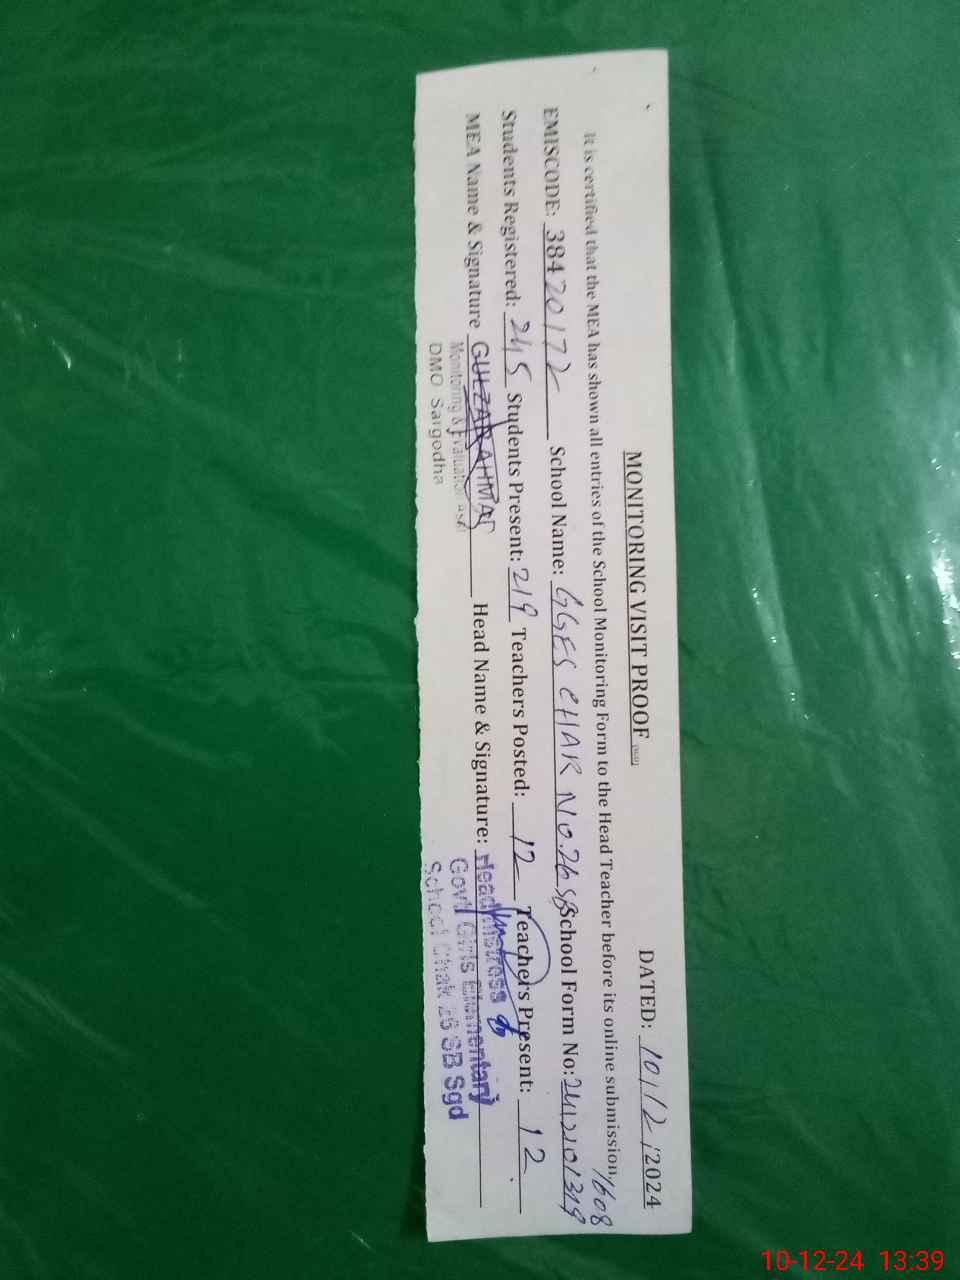 MONITORING VISIT PROOF
DATED: 10/12/2024
It is certified that the MEA has shown all entries of the School Monitoring Form to the Head Teacher before its online submission.
EMISCODE: 38420172 School Name: GGES CHAK NO.26 SB School Form No: 2412101319
1608
Students Registered: 245 Students Present: 219 Teachers Posted: 12 Teachers Present: 12
MEA Name & Signature GULZAR AHMAD Head Name & Signature: Headmistress
Monitoring & Evaluation
DMO Sargodha
Govt Girls Elementary
School Chak 26 SB Sgd
10-12-24 13:39